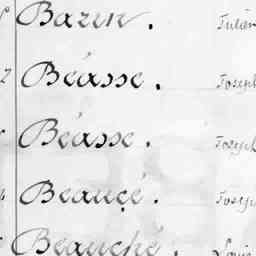 Bazin. Julien
Béasse. Joseph
Béasse. Joseph
Beaucé. Joseph
Beauché. Louis